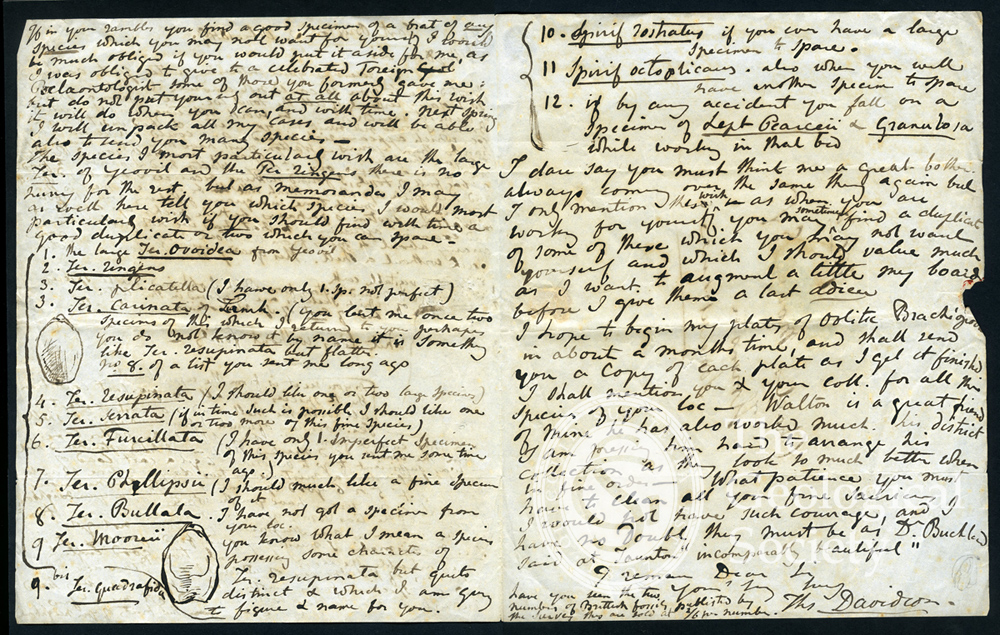 If in your rambles you find a good specimen of a brat of any
species which you may not want for yourself I would
be much obliged if you would put it aside for me as
I was obliged to give to a celebrated Foreign
Palaeontologist some of those you formerly gave me;
but do not put yourself out at all about this wish
it will do when you can and with time. Next spring
I will unpack all my cases and will be able
also to send you many species —
The species I most particularly wish are the large
Ter. of Yeovil and the Ter ringens, there is no
hurry for the rest, but as memoranda I may
as well here tell you which species I would most
particularly wish if you should find with time a
good duplicate or two which you can spare.
1. the large Ter. Ovoidea from Yeovil
2. Ter ringens
3. Ter. plicatilla (I have only 1. Sp. not perfect)
3. Ter. Carinata Lamk. (you lent me once two
specims of this which I return to you perhaps
you do not know it by name it is something
like Ter. resupinata but flatter.
no 8. of a list you sent me long ago
4. Ter. resupinata (I should like one or two large species)
5. Ter. serrata (if in time such is possible I should like one
or two more of this fine species)
6. Ter. Furcillata (I have only 1. imperfect specimen
of this species you sent me some time
ago.)
7. Ter. Phillipsii (I should much like a fine specim
of it
8. Ter. Bullata. I have not got a specim from
your loc.
9 Ter. Mooreii you know what I mean a species
possessing some characters of
Ter. resupinata but quite
distinct & which I am going
to figure & name for you.
9 bis Ter. Quadrafida
10. Spirif rostratus if you ever have a large
specimen to spare.
11 Spirif octoplicatus. also when you will
have another specim to spare
12. if by any accident you fall on a
specimen of Lept Pearceii & Granulosa
while working in that bed
I dare say you must think me a great bother
always coming over the same thing again but
I only mention this wish as when you are
working for yourself you may sometimes find a duplicat
of some of these which you may not want
yourself and which I should value much
as I want to augment a little my board
before I give them a last adieu
I hope to begin my plates of Oolitic Brachiopod
in about a months time, and shall send
you a copy of each plate as I get it finished
I shall mention you & your coll. for all the
species of your loc — Walton is a great friend
of mine he has also worked much this district
I am pressing him hard to arrange his
collection as they look so much better when
in fine order — What patience you must
have to clean all your fine Saurians
I would not have such courage, and I
have no Doubt, they must be as Dr. Buckland
said at Taunton "incomparably beautiful"
I remain Dear Sir
Yours Truly
Ths Davidson.
have you seen the two numbers of British fossils published by
the Survey they are sold at 2/6 per number.
The
Geological
Society